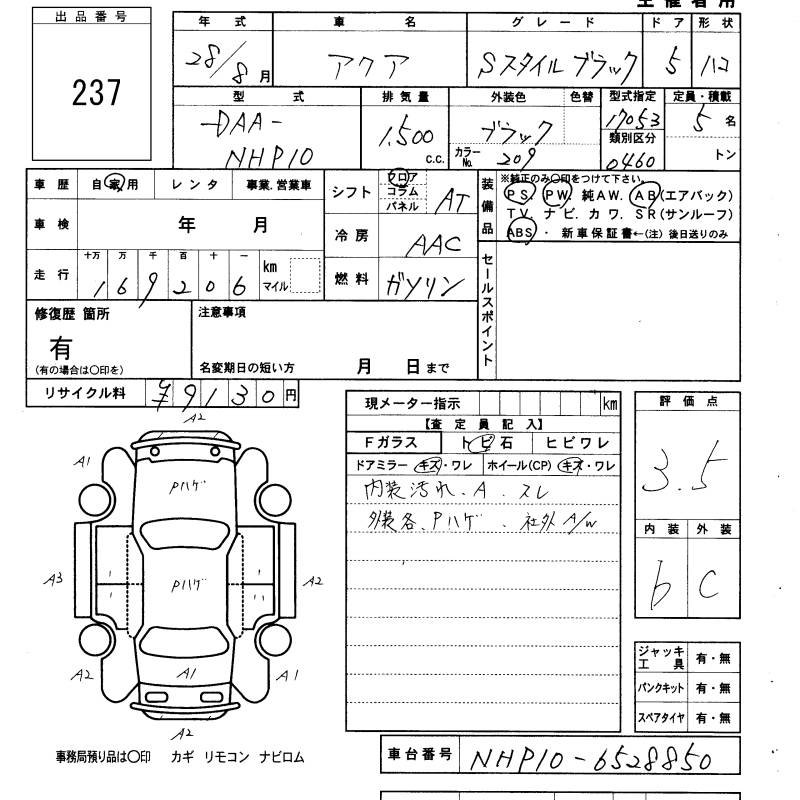 出品番号
237
年式 車名 グレード ドア 形状
28/8月 アクア Sスタイル ブラック 5 ハコ
型式 排気量 外装色 色替 型式指定 定員・積載
DAA-
NHP10
1.500 c.c.
ブラック
カラーNo. 209
17053
類別区分
0460
5名
トン
車歴 自家用 レンタ 事業.営業車
車検 年 月
走行 十万 万 千 百 十 一
169206 km マイル
シフト フロア コラム パネル AT
冷房 AAC
燃料 ガソリン
装備品
※純正のみ〇印をつけて下さい。
PS. PW. 純AW. AB(エアバック)
TV. ナビ. カワ. SR(サンルーフ)
ABS・ 新車保証書←(注) 後日送りのみ
セールスポイント
修復歴 箇所
有
(有の場合は〇印を)
注意事項
名変期日の短い方 月 日まで
リサイクル料 ¥9130円
現メーター指示 km
【査定員記入】
Fガラス トビ石 ヒビワレ
ドアミラー キズ・ワレ ホイール(CP) キズ・ワレ
内装汚れ. A. スレ
外装各. Pハゲ. 社外A/W
評価点
3.5
内装 外装
b C
A2
A1
Pハゲ
A3
Pハゲ
A2
A2
A1
A1
A2
ジャッキ工具 有・無
パンクキット 有・無
スペアタイヤ 有・無
事務局預り品は〇印 カギ リモコン ナビロム
車台番号 NHP10-6528850